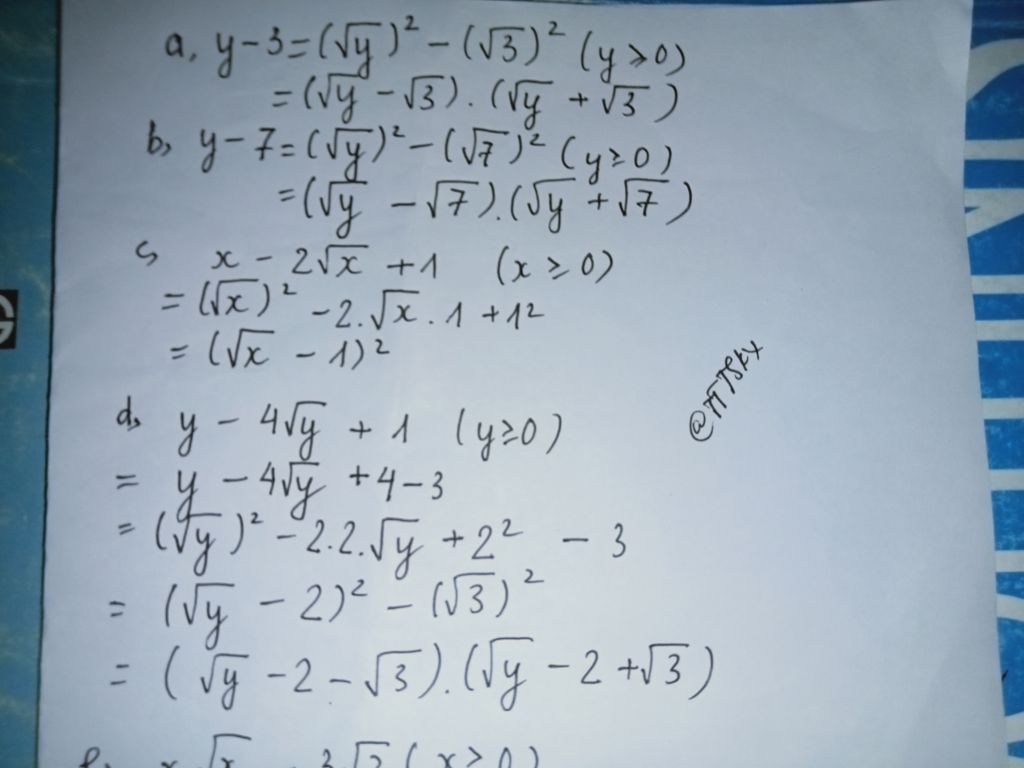 a, y-3=(√y)² - (√3)² (y≥0)
= (√y - √3). (√y + √3)
b, y-7=(√y)² - (√7)² (y≥0)
= (√y - √7).(√y + √7)
c, x - 2√x + 1 (x ≥ 0)
= (√x)² - 2.√x. 1 + 1²
= (√x - 1)²
d, y - 4√y + 1 (y≥0)
= y - 4√y + 4-3
= (√y)² - 2.2.√y + 2² - 3
= (√y - 2)² - (√3)²
= (√y - 2 - √3).(√y - 2 + √3)